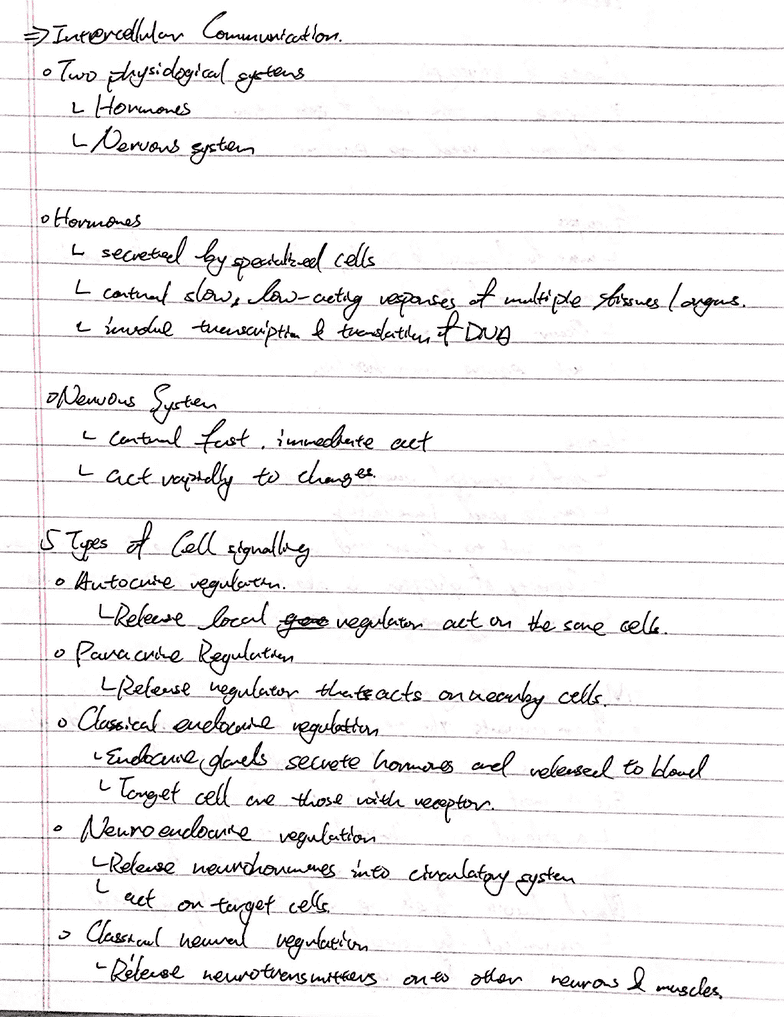 ⇒ Intercellular Communication.
o Two physiological systems
└ Hormones
└ Nervous system
o Hormones
└ secreted by specialized cells
└ control slow, low-acting responses of multiple tissues / organs.
└ involve transcription & translation of DNA
o Nervous System
└ control fast, immediate act
└ act rapidly to changes.
5 Types of Cell signalling
o Autocrine regulation.
└ Release local regulator act on the same cells.
o Paracrine Regulation
└ Release regulator that acts on nearby cells.
o Classical endocrine regulation
└ Endocrine glands secrete hormones and released to blood
└ Target cell are those with receptor.
o Neuroendocrine regulation
└ Release neurohormones into circulatory system
└ act on target cells.
o Classical neural regulation
└ Release neurotransmitters onto other neurons & muscles.